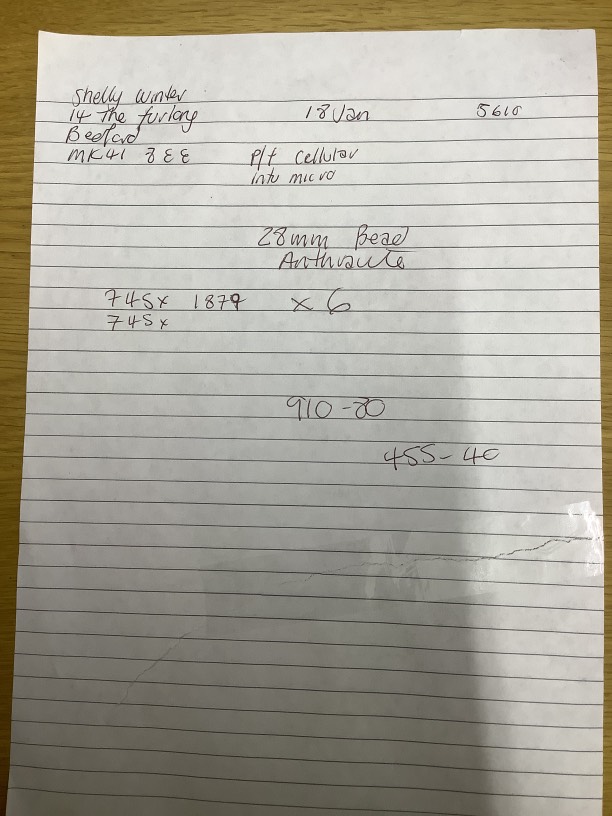 Shelly Winter
14 The furlong 18 Jan 5610
Bedford
MK41 8EE P/f cellular
into micro
28mm Bead
Anthracite
745x 1879 x 6
745x
910-80
455-40